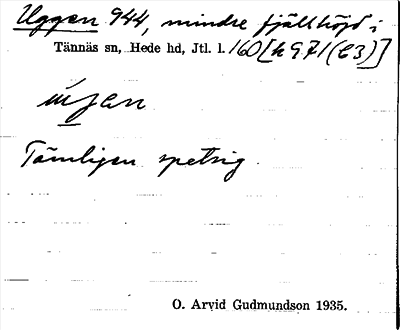 Uggen 944, mindre fjällhöjd i
Tännäs sn, Hede hd, Jtl. l. 160 [h 971 (C3)]
Tämligen spetsig.
O. Arvid Gudmundson 1935.